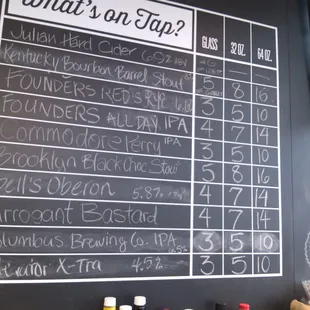 What's on Tap?
GLASS 32 OZ. 64 OZ.
Julian Hard Cider 6.9%
Kentucky Bourbon Barrel Stout 5
FOUNDERS RED'S RYE 5 8 16
FOUNDERS ALL DAY IPA 3 5 10
Commodore Perry IPA 4 7 14
Brooklyn Black Choc Stout 3 5 10
Bell's Oberon 5.8% 5 8 16
Arrogant Bastard 4 7 14
Columbus Brewing Co. IPA 4 7 14
X-Tra 4.5% 3 5 10
3 5 10